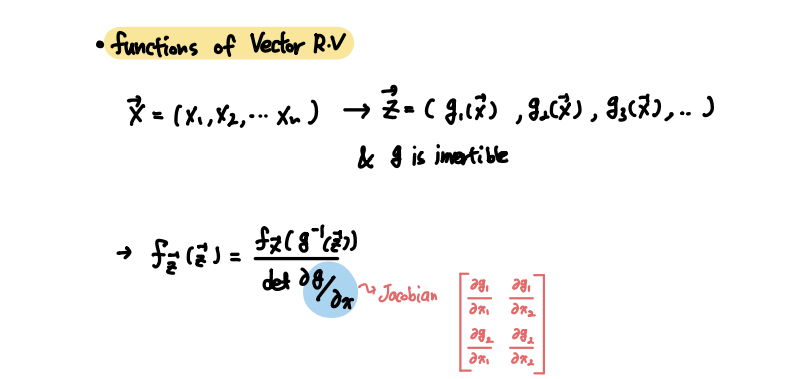 • functions of Vector R.V
X⃗ = (X₁, X₂, ⋯ Xₙ) → Z⃗ = ( g₁(X⃗) , g₂(X⃗) , g₃(X⃗) , .. )
& g is invertible
→ f_Z⃗ (Z⃗) = f_X⃗ ( g⁻¹(Z⃗))
det ∂g/∂x
Jacobian
∂g₁/∂x₁ ∂g₁/∂x₂
∂g₂/∂x₁ ∂g₂/∂x₂